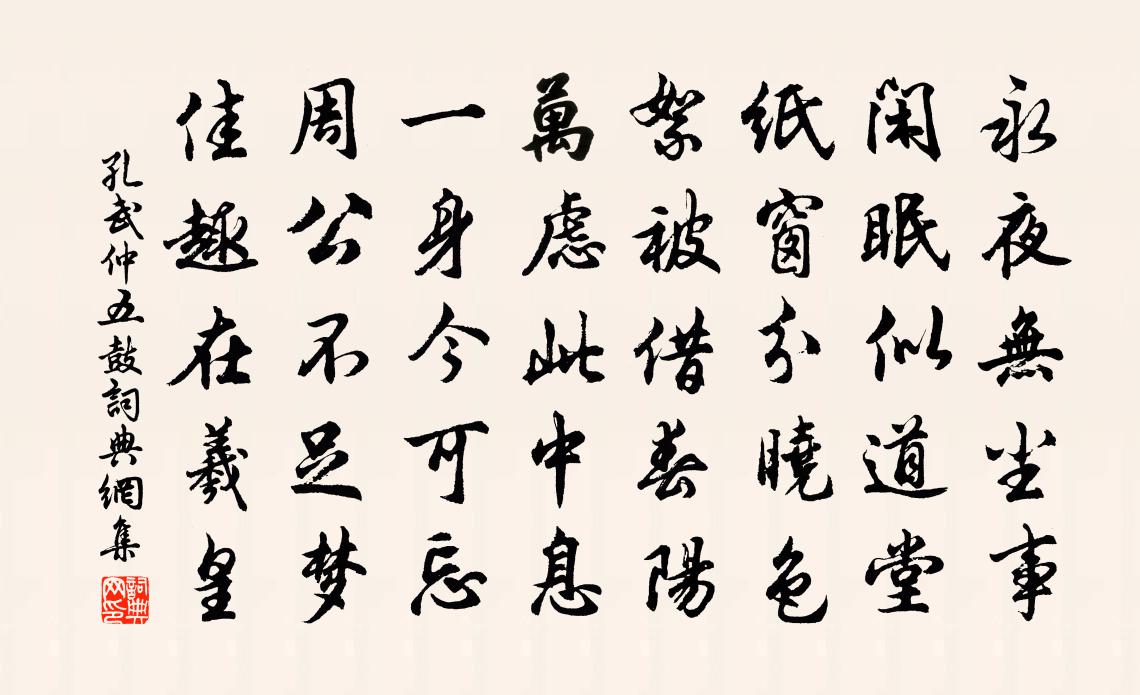 永夜無尘事
閑眠似道堂
纸窗分曉色
絮被借春陽
萬慮此中息
一身今可忘
周公不足梦
佳趣在羲皇
孔武仲五鼓詞典網集
詞典网印